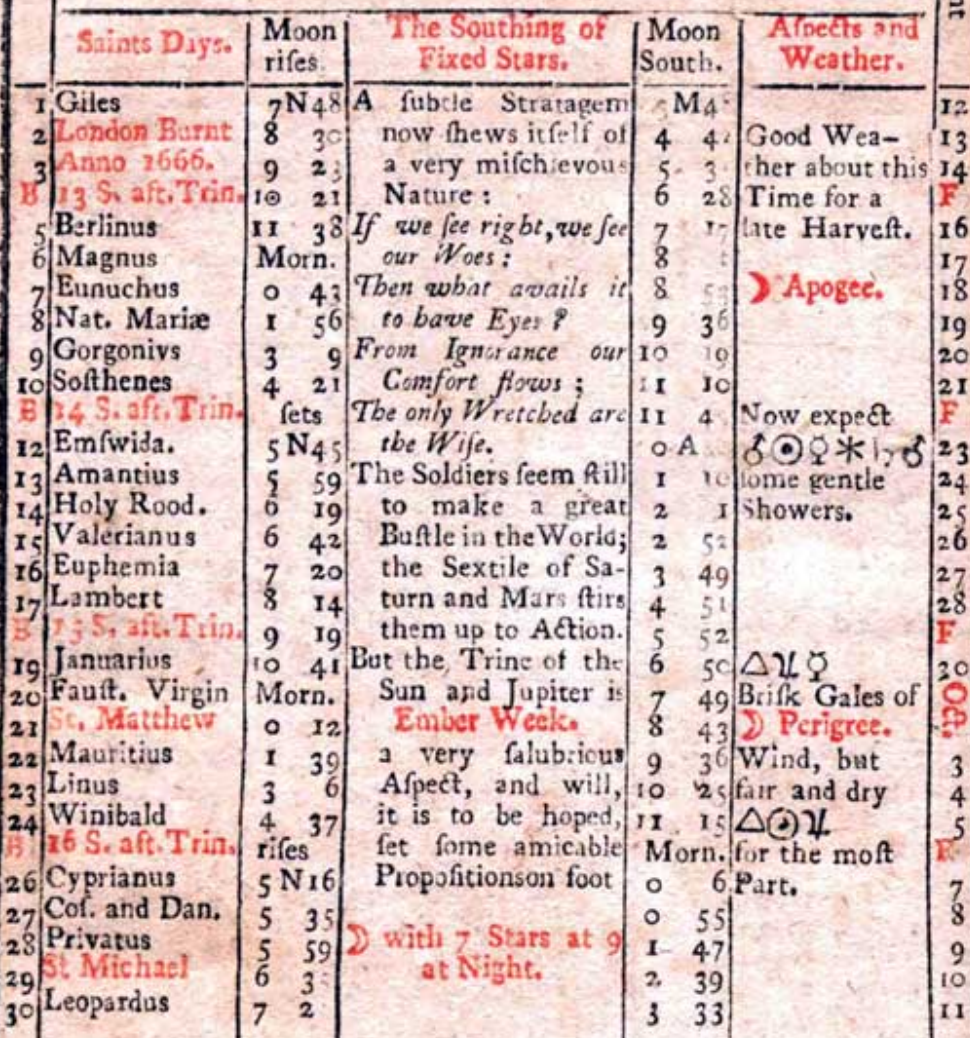 Saints Days. Moon rises. The Southing of Fixed Stars. Moon South. Aspects and Weather.
1 Giles 7N48 A ſubtle Stratagem M4 12
2 London Burnt 8 30 now ſhews itſelf of 4 4 Good Wea- 13
3 Anno 1666. 9 23 a very miſchievous 5 3 ther about this 14
B 13 S. aft. Trin. 10 21 Nature : 6 28 Time for a F
5 Berlinus 11 38 If we ſee right, we ſee 7 17 late Harveſt. 16
6 Magnus Morn. our Woes : 8 17
7 Eunuchus 0 43 Then what avails it 8 53 ☽ Apogee. 18
8 Nat. Mariæ 1 56 to have Eyes ? 9 36 19
9 Gorgonivs 3 9 From Ignorance our 10 19 20
10 Soſthenes 4 21 Comfort flows ; 11 10 21
B 14 S. aft. Trin. ſets The only Wretched are 11 4 Now expect F
12 Emſwida. 5N45 the Wiſe. 0 A ♂☉☿✱♄♂ 23
13 Amantius 5 59 The Soldiers ſeem ſtill 1 10 ſome gentle 24
14 Holy Rood. 6 19 to make a great 2 1 Showers. 25
15 Valerianus 6 42 Buſtle in the World; 2 52 26
16 Euphemia 7 20 the Sextile of Sa- 3 49 27
17 Lambert 8 14 turn and Mars ſtirs 4 51 28
B 15 S. aft. Trin. 9 19 them up to Action. 5 52 F
19 Januarius 10 41 But the Trine of the 6 50 △♃☿ 30
20 Fauſt. Virgin Morn. Sun and Jupiter is 7 49 Briſk Gales of Oct.
21 St. Matthew 0 12 Ember Week. 8 43 ☽ Perigree.
22 Mauritius 1 39 a very ſalubrious 9 36 Wind, but 3
23 Linus 3 6 Aſpect, and will, 10 25 fair and dry 4
24 Winibald 4 37 it is to be hoped, 11 15 △☉♃ 5
B 16 S. aft. Trin. riſes ſet ſome amicable Morn. for the moſt F
26 Cyprianus 5N16 Propoſitionson foot 0 6 Part. 7
27 Coſ. and Dan. 5 35 0 55 8
28 Privatus 5 59 ☽ with 7 Stars at 9 1 47 9
29 St Michael 6 3 at Night. 2 39 10
30 Leopardus 7 2 3 33 11